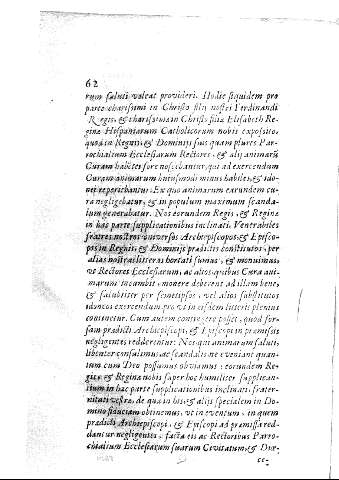 62
rum saluti valeat provideri. Hodie siquidem pro
parte charissimi in Christo filij nostri Ferdinandi
Regis, & charissimæ in Christo filiæ Elisabeth Re-
ginæ Hispaniarum Catholicorum nobis exposito,
quod in Regnis, & Dominijs suis quam plures Par-
rochialium Ecclesiarum Rectores, & alij animarū
Curam habētes forē noscebantur, qui ad exercendum
Curam animarum huiusmodi minus habiles, & ido-
nei reperiebantur: Ex quo animarum earundem cu-
ra negligebatur, & in populum maximum scanda-
lum generabatur. Nos eorundem Regis, & Reginæ
in hac parte supplicationibus inclinati. Venerabiles
fratres nostros universos Archiepiscopos, & Episco-
pos in Regnis, & Dominijs prædictis constitutos, per
alias nostras litteras hortati sumus, & monuimus,
vt Rectores Ecclesiarum, ac alios quibus Cura ani-
marum incumbit, monere deberent ad illam bene,
& salubriter per semetipsos, vel alios substitutos
idoneos exercendum prout in eisdem litteris plenius
continetur. Cum autem contingere posset, quod for-
sam prædicti Archiepiscopi, & Episcopi in præmissis
negligentes redderentur: Nos qui animarum saluti
libenter consulimus, ac scandalis ne eveniant quan-
tum cum Deo possumus obviamus: eorundem Re-
gis, & Reginæ nobis super hoc humiliter supplican-
tium in hac parte supplicationibus inclinati, frater-
nitati vestræ, de qua in his, & alijs specialem in Do-
mino fiduciam obtinemus, vt in eventum, in quem
prædicti Archiepiscopi, & Episcopi ad præmissa red-
dantur negligentes, facta eis ac Rectoribus Parro-
chialium Ecclesiarum suarum Civitatum, & Diœ-
ce-